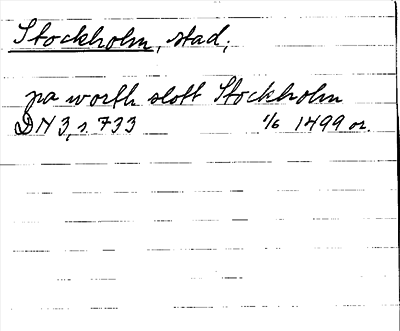 Stockholm, stad;
pa worth slott Stockholm
DN 3, s. 733 1/6 1499 or.